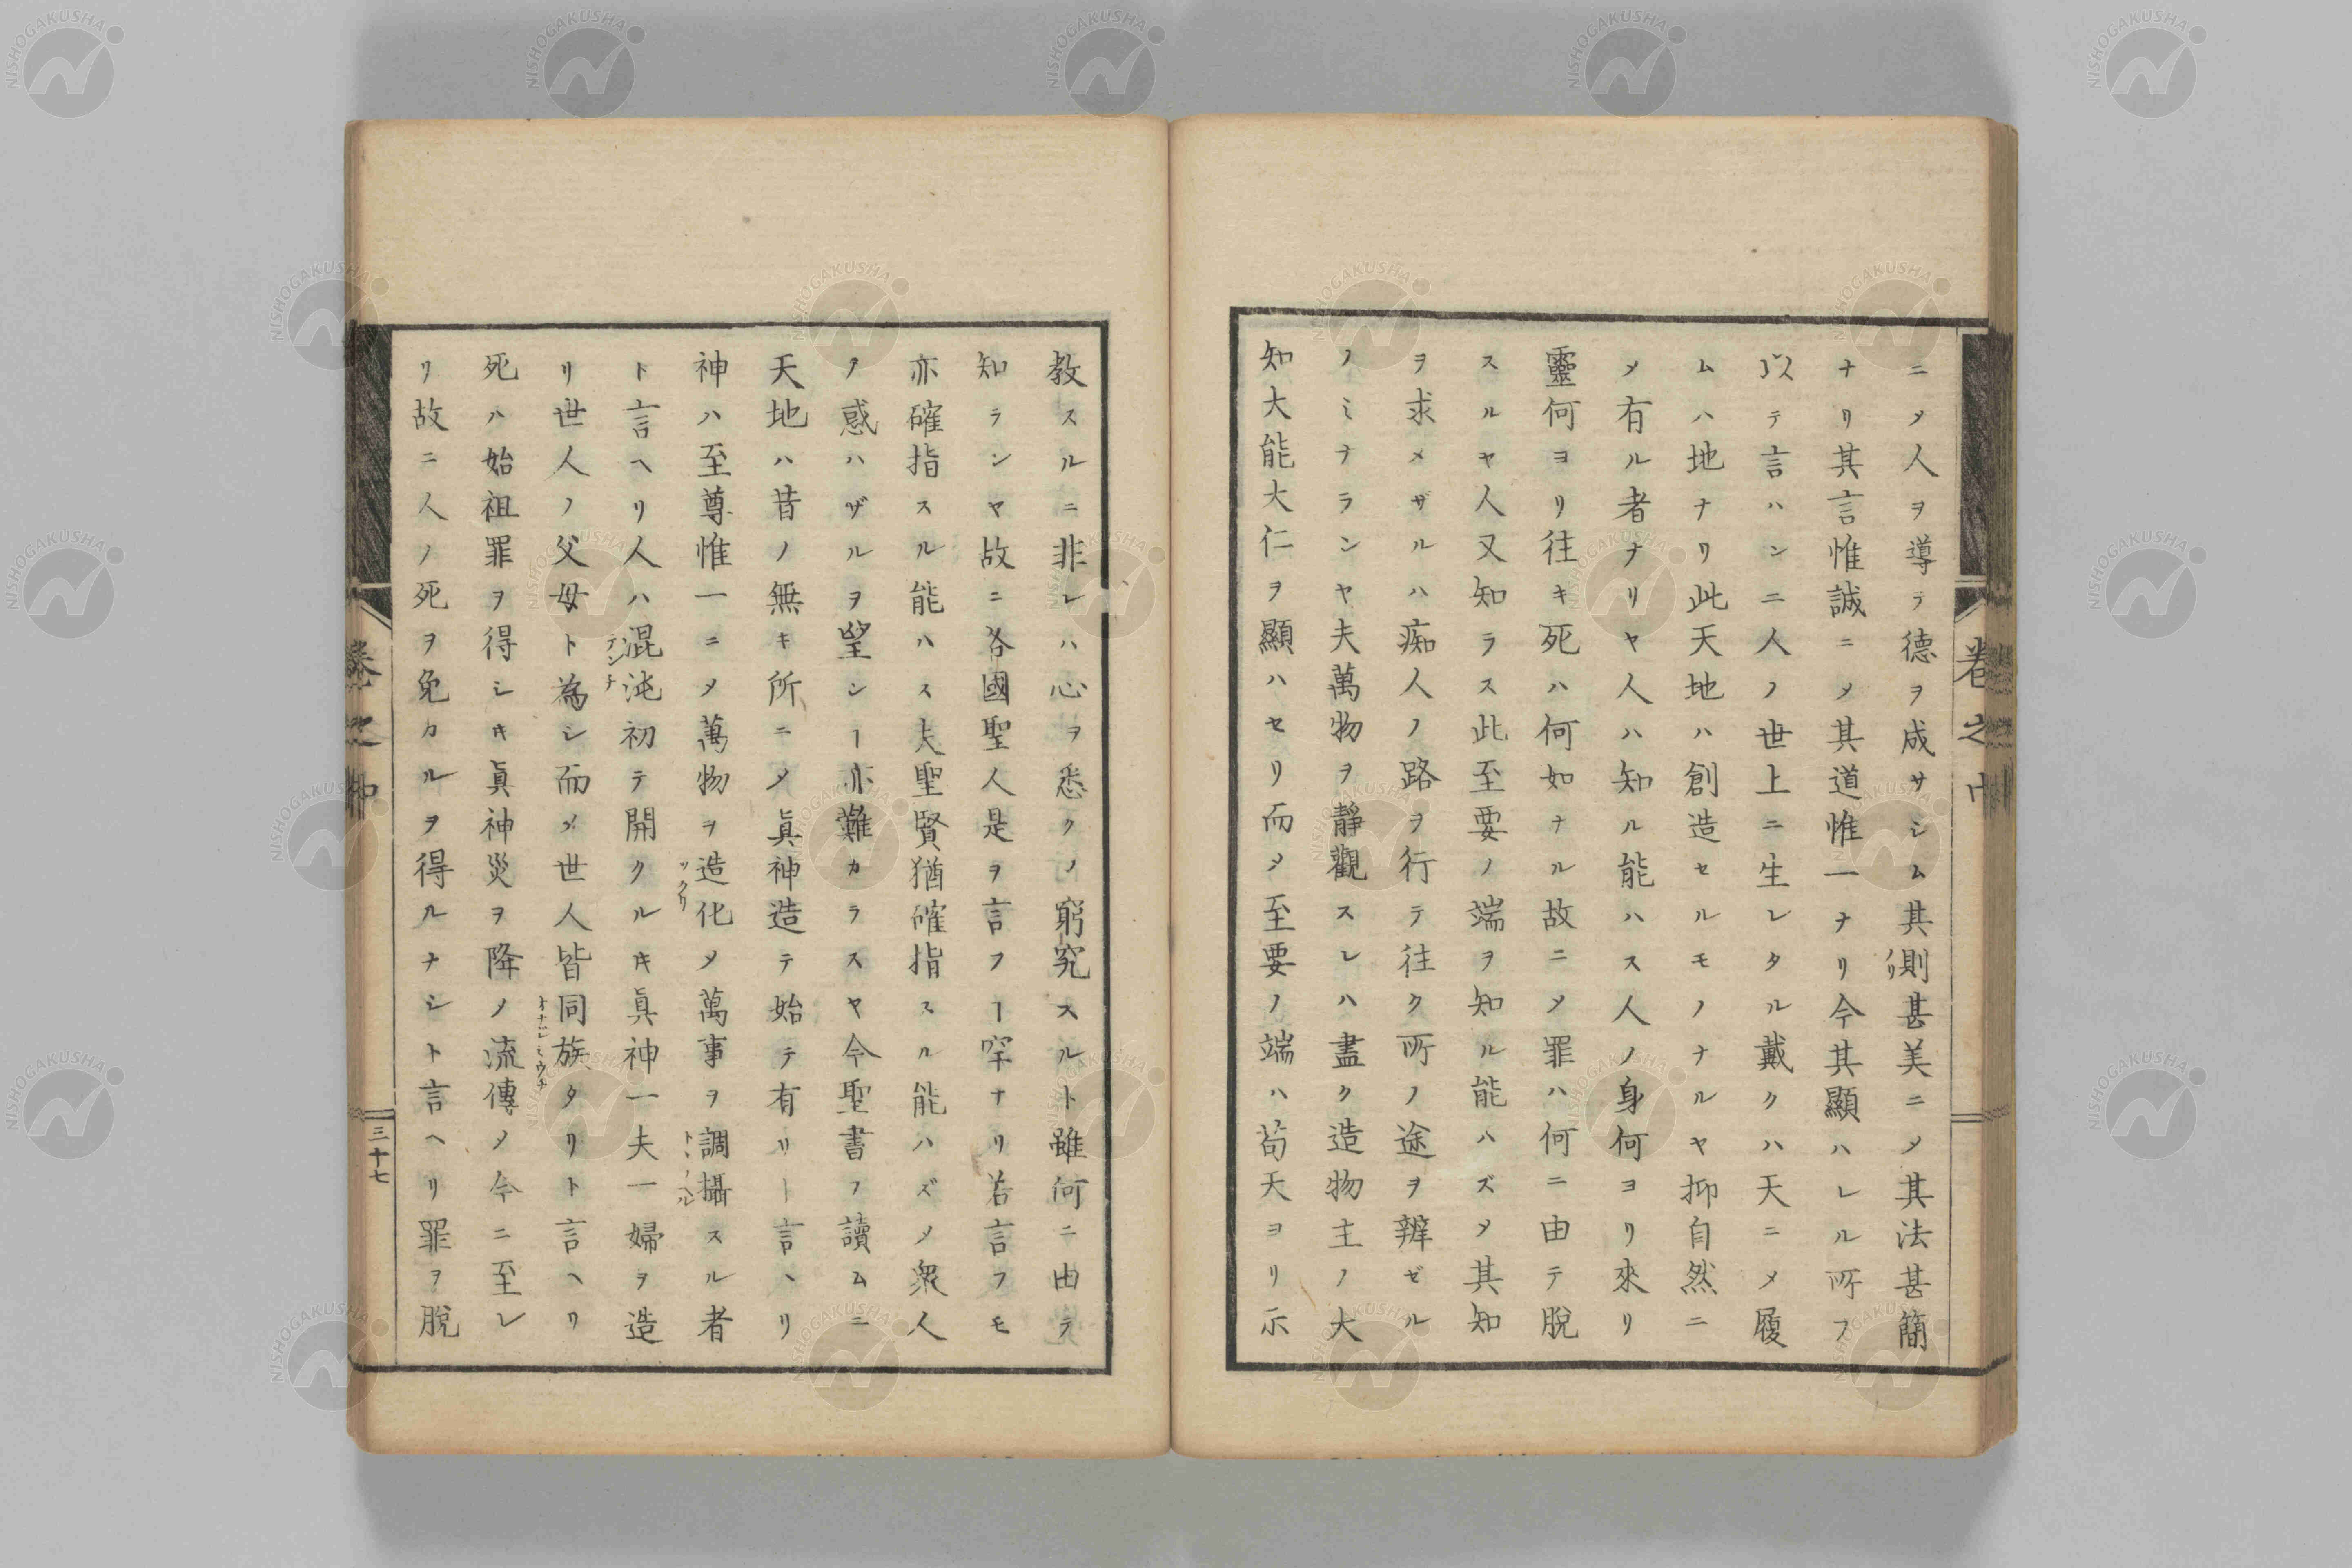 ニメ人ヲ導テ德ヲ成サシム其則甚美ニメ其法甚簡
ノリ
ナリ其言惟誠ニメ其道惟一ナリ今其顯ハレル所フ
以テ言ハンニ人ノ世上ニ生レタル戴クハ天ニメ履
ムハ地ナリ此天地ハ創造セルモノナルヤ抑自然ニ
メ有ル者ナリヤ人ハ知ル能ハス人ノ身何ヨリ來リ
靈何ヨリ往キ死ハ何如ナル故ニメ罪ハ何ニ由テ脫
スルヤ人又知ラス此至要ノ端ヲ知ル能ハズメ其知
ヲ求メザルハ痴人ノ路ヲ行テ往ク所ノ途ヲ辨ゼル
ノミナランヤ夫萬物ヲ靜觀スレハ盡ク造物主ノ大
知大能大仁ヲ顯ハセリ而メ至要ノ端ハ苟天ヨリ示
卷之中
教スルニ非レハ心ヲ悉クノ窮究スルト雖何ニ由テ
知ランヤ故ニ各國聖人是ヲ言フー罕ナリ若言フモ
亦確指スル能ハス夫聖賢猶確指スル能ハズメ衆人
ノ惑ハザルヲ望ンー亦難カラスヤ今聖書フ讀ムニ
天地ハ昔ノ無キ所ニメ眞神造テ始テ有リー言ヘリ
神ハ至尊惟一ニメ萬物ヲ造化メ萬事ヲ調攝スル者
ツクリ
トヽノヘル
ト言ヘリ人ハ混沌初テ開クルキ眞神一夫一婦ヲ造
テンチ
リ世人ノ父母ト為シ而メ世人皆同族タリト言ヘリ
オナジミウチ
死ハ始祖罪ヲ得シキ眞神災ヲ降メ流傳メ今ニ至レ
リ故ニ人ノ死ヲ免カルヲ得ルナシト言ヘリ罪ヲ脫
卷之中
三十七
NISHOGAKUSHA